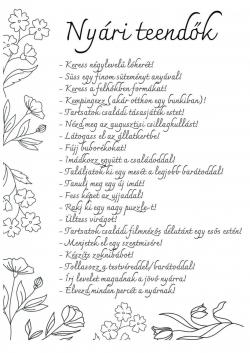 Nyári teendők
- Keress négylevelű lóherét!
- Süss egy finom süteményt anyával!
- Keress a felhőkben formákat!
- Kempingezz (akár otthon egy bunkiban)!
- Tartsatok családi társasjáték estet!
- Nézd meg az augusztusi csillaghullást!
- Látogass el az állatkertbe!
- Fújj buborékokat!
- Imádkozz együtt a családoddal!
- Találjatok ki egy mesét a legjobb barátoddal!
- Tanulj meg egy új imát!
- Fess képet az ujjaddal!
- Rakj ki egy nagy puzzle-t!
- Ültess virágot!
- Tartsatok családi filmnézős délutánt egy esős estén!
- Menjetek el egy szentmisére!
- Készíts zoknibábot!
- Tollasozz a testvéreddel/barátoddal!
- Írj levelet magadnak a jövő nyárra!
- Élvezd minden percét a nyárnak!